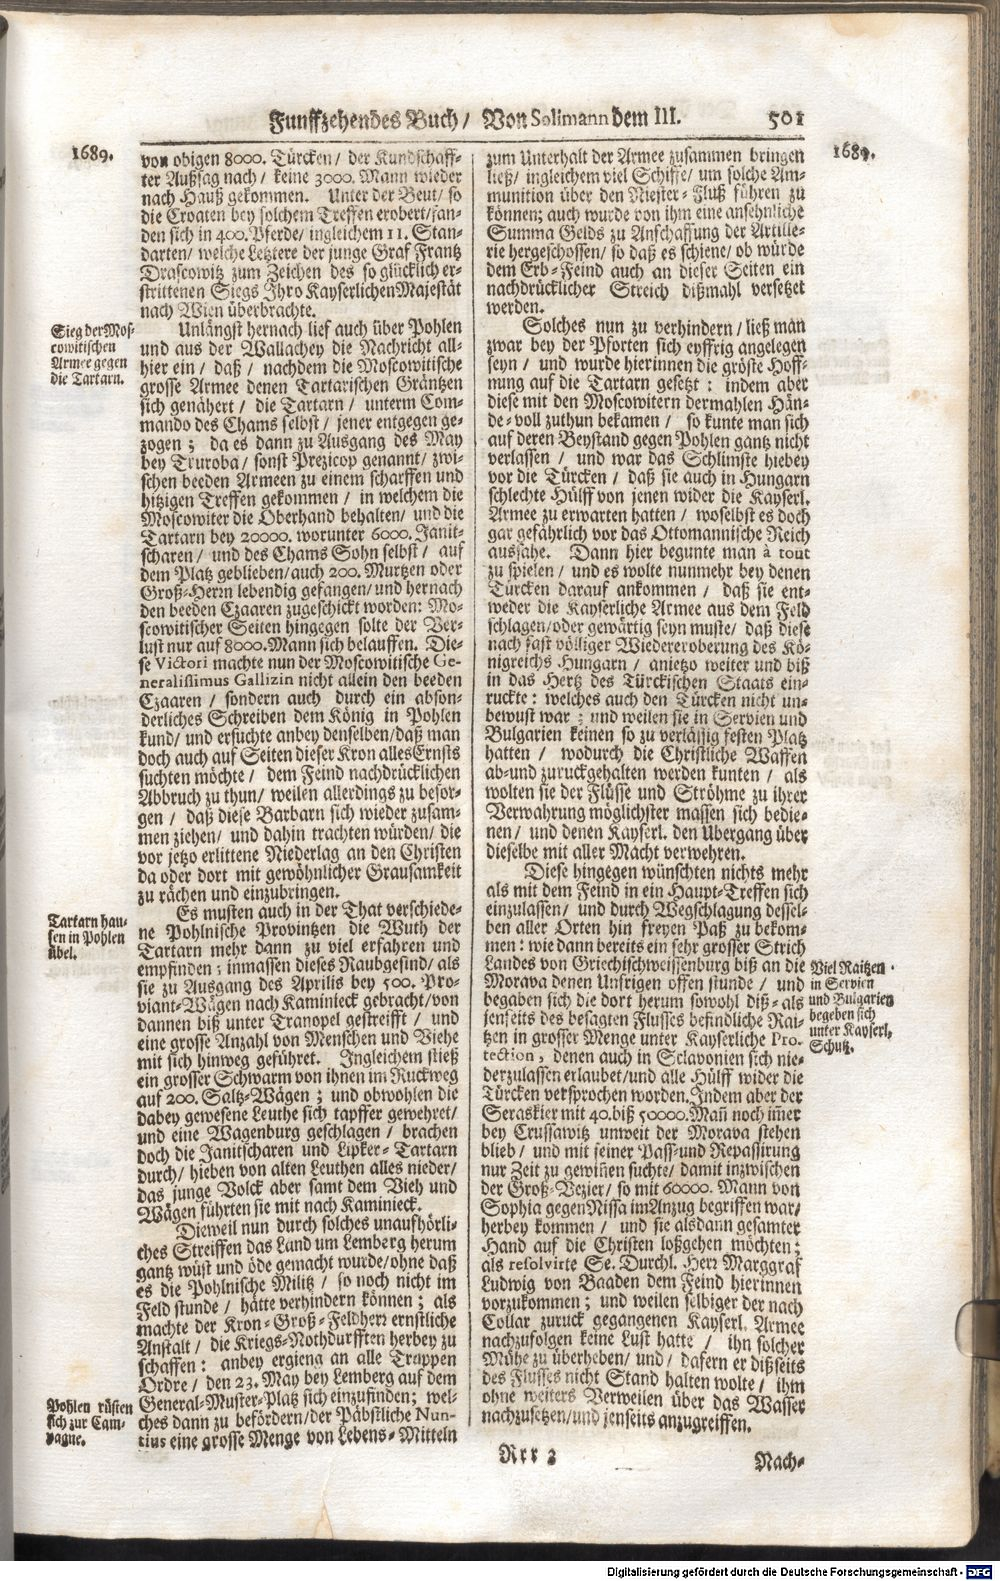 Funffzehendes Buch / Von Solimann dem III. 501
1689.
von obigen 8000. Türcken / der Kundschaff-
ter Außsag nach / keine 3000. Mann wieder
nach Hauß gekommen. Unter der Beut / so
die Croaten bey solchem Treffen erobert / fan-
den sich in 400. Pferde / ingleichem 11. Stan-
darten / welche Letztere der junge Graf Frantz
Drascowitz zum Zeichen des so glücklich er-
strittenen Siegs Ihro Kayserlichen Majestät
nach Wien überbrachte.
Sieg der Mos-
cowitischen
Armee gegen
die Tartarn.
Unlängst hernach lief auch über Pohlen
und aus der Wallachey die Nachricht all-
hier ein / daß / nachdem die Moscowitische
grosse Armee denen Tartarischen Gräntzen
sich genähert / die Tartarn / unterm Com-
mando des Chams selbst / jener entgegen ge-
zogen ; da es dann zu Ausgang des May
bey Truroba / sonst Prezicop genannt / zwi-
schen beeden Armeen zu einem scharffen und
hitzigen Treffen gekommen / in welchem die
Moscowiter die Oberhand behalten / und die
Tartarn bey 20000. worunter 6000. Janit-
scharen / und des Chams Sohn selbst / auf
dem Platz geblieben / auch 200. Murtzen oder
Groß-Herrn lebendig gefangen / und hernach
den beeden Czaaren zugeschickt worden: Mo-
scowitischer Seiten hingegen solte der Ver-
lust nur auf 8000. Mann sich belauffen. Die-
se Victori machte nun der Moscowitische Ge-
neralissimus Gallizin nicht allein den beeden
Czaaren / sondern auch durch ein abson-
derliches Schreiben dem König in Pohlen
kund / und ersuchte anbey denselben / daß man
doch auch auf Seiten dieser Kron alles Ernsts
suchten möchte / dem Feind nachdrücklichen
Abbruch zu thun / weilen allerdings zu besor-
gen / daß diese Barbarn sich wieder zusam-
men ziehen / und dahin trachten würden / die
vor jetzo erlittene Niederlag an den Christen
da oder dort mit gewöhnlicher Grausamkeit
zu rächen und einzubringen.
Tartarn hau-
sen in Pohlen
übel.
Es musten auch in der That verschiede-
ne Pohlnische Provintzen die Wuth der
Tartarn mehr dann zu viel erfahren und
empfinden ; inmassen dieses Raubgesind / als
sie zu Ausgang des Aprilis bey 500. Pro-
viant-Wägen nach Kaminieck gebracht / von
dannen biß unter Tranopel gestreifft / und
eine grosse Anzahl von Menschen und Viehe
mit sich hinweg geführet. Ingleichem stieß
ein grosser Schwarm von ihnen im Ruckweg
auf 200. Saltz-Wägen ; und obwohlen die
dabey gewesene Leuthe sich tapffer gewehret /
und eine Wagenburg geschlagen / brachen
doch die Janitscharen und Lipker-Tartarn
durch / hieben von alten Leuthen alles nieder /
das junge Volck aber samt dem Vieh und
Wägen führten sie mit nach Kaminieck.
Dieweil nun durch solches unaufhörli-
ches Streiffen das Land um Lemberg herum
gantz wüst und öde gemacht wurde / ohne daß
es die Pohlnische Militz / so noch nicht im
Feld stunde / hätte verhindern können ; als
machte der Kron-Groß-Feldherr ernstliche
Anstalt / die Kriegs-Nothdurfften herbey zu
schaffen: anbey ergieng an alle Trappen
Ordre / den 23. May bey Lemberg auf dem
Pohlen rüsten
sich zur Cam-
pagne.
General-Muster-Platz sich einzufinden; wel-
ches dann zu befördern / der Päbstliche Nun-
tius eine grosse Menge von Lebens-Mitteln
1689.
zum Unterhalt der Armee zusammen bringen
ließ / ingleichem viel Schiffe / um solche Am-
munition über den Niester-Fluß führen zu
können; auch wurde von ihm eine ansehnliche
Summa Gelds zu Anschaffung der Artille-
rie hergeschossen / so daß es schiene / ob würde
dem Erb-Feind auch an dieser Seiten ein
nachdrücklicher Streich dißmahl versetzet
werden.
Solches nun zu verhindern / ließ man
zwar bey der Pforten sich eyffrig angelegen
seyn / und wurde hierinnen die gröste Hoff-
nung auf die Tartarn gesetzt : indem aber
diese mit den Moscowitern dermahlen Hän-
de-voll zuthun bekamen / so kunte man sich
auf deren Beystand gegen Pohlen gantz nicht
verlassen / und war das Schlimste hiebey
vor die Türcken / daß sie auch in Hungarn
schlechte Hülff von jenen wider die Kayserl.
Armee zu erwarten hatten / woselbst es doch
gar gefährlich vor das Ottomannische Reich
aussahe. Dann hier begunte man à tout
zu spielen / und es wolte nunmehr bey denen
Türcken darauf ankommen / daß sie ent-
weder die Kayserliche Armee aus dem Feld
schlagen / oder gewärtig seyn muste / daß diese
nach fast völliger Wiedereroberung des Kö-
nigreichs Hungarn / anietzo weiter und biß
in das Hertz des Türckischen Staats ein-
ruckte : welches auch den Türcken nicht un-
bewust war ; und weilen sie in Servien und
Bulgarien keinen so zu verlässig festen Platz
hatten / wodurch die Christliche Waffen
ab-und zuruckgehalten werden kunten / als
wolten sie der Flüsse und Ströhme zu ihrer
Verwahrung möglichster massen sich bedie-
nen / und denen Kayserl. den Ubergang über
dieselbe mit aller Macht verwehren.
Diese hingegen wünschten nichts mehr
als mit dem Feind in ein Haupt-Treffen sich
einzulassen / und durch Wegschlagung dessel-
ben aller Orten hin freyen Paß zu bekom-
men : wie dann bereits ein sehr grosser Strich
Landes von Griechischweissenburg biß an die
Morava denen Unsrigen offen stunde / und
begaben sich die dort herum sowohl diß-als
jenseits des besagten Flusses befindliche Rai-
tzen in grosser Menge unter Kayserliche Pro-
tection, denen auch in Sclavonien sich nie-
derzulassen erlaubet / und alle Hülff wider die
Türcken versprochen worden. Indem aber der
Viel Raitzen
in Servien
und Bulgarien
begeben sich
unter Kayserl.
Schutz.
Seraskier mit 40. biß 50000. Mañ noch im̃er
bey Crussawitz unweit der Morava stehen
blieb / und mit seiner Pass-und Repassirung
nur Zeit zu gewiñen suchte / damit inzwischen
der Groß-Vezier / so mit 60000. Mann von
Sophia gegen Nissa im Anzug begriffen war /
herbey kommen / und sie alsdann gesamter
Hand auf die Christen loßgehen möchten ;
als resolvirte Se. Durchl. Herr Marggraf
Ludwig von Baaden dem Feind hierinnen
vorzukommen ; und weilen selbiger der nach
Collar zuruck gegangenen Kayserl. Armee
nachzufolgen keine Lust hatte / ihn solcher
Mühe zu überheben / und / dafern er dißseits
des Flusses nicht Stand halten wolte / ihm
ohne weiters Verweilen über das Wasser
nachzusetzen / und jenseits anzugreiffen.
Rrr 2
Nach-
Digitalisierung gefördert durch die Deutsche Forschungsgemeinschaft - DFG